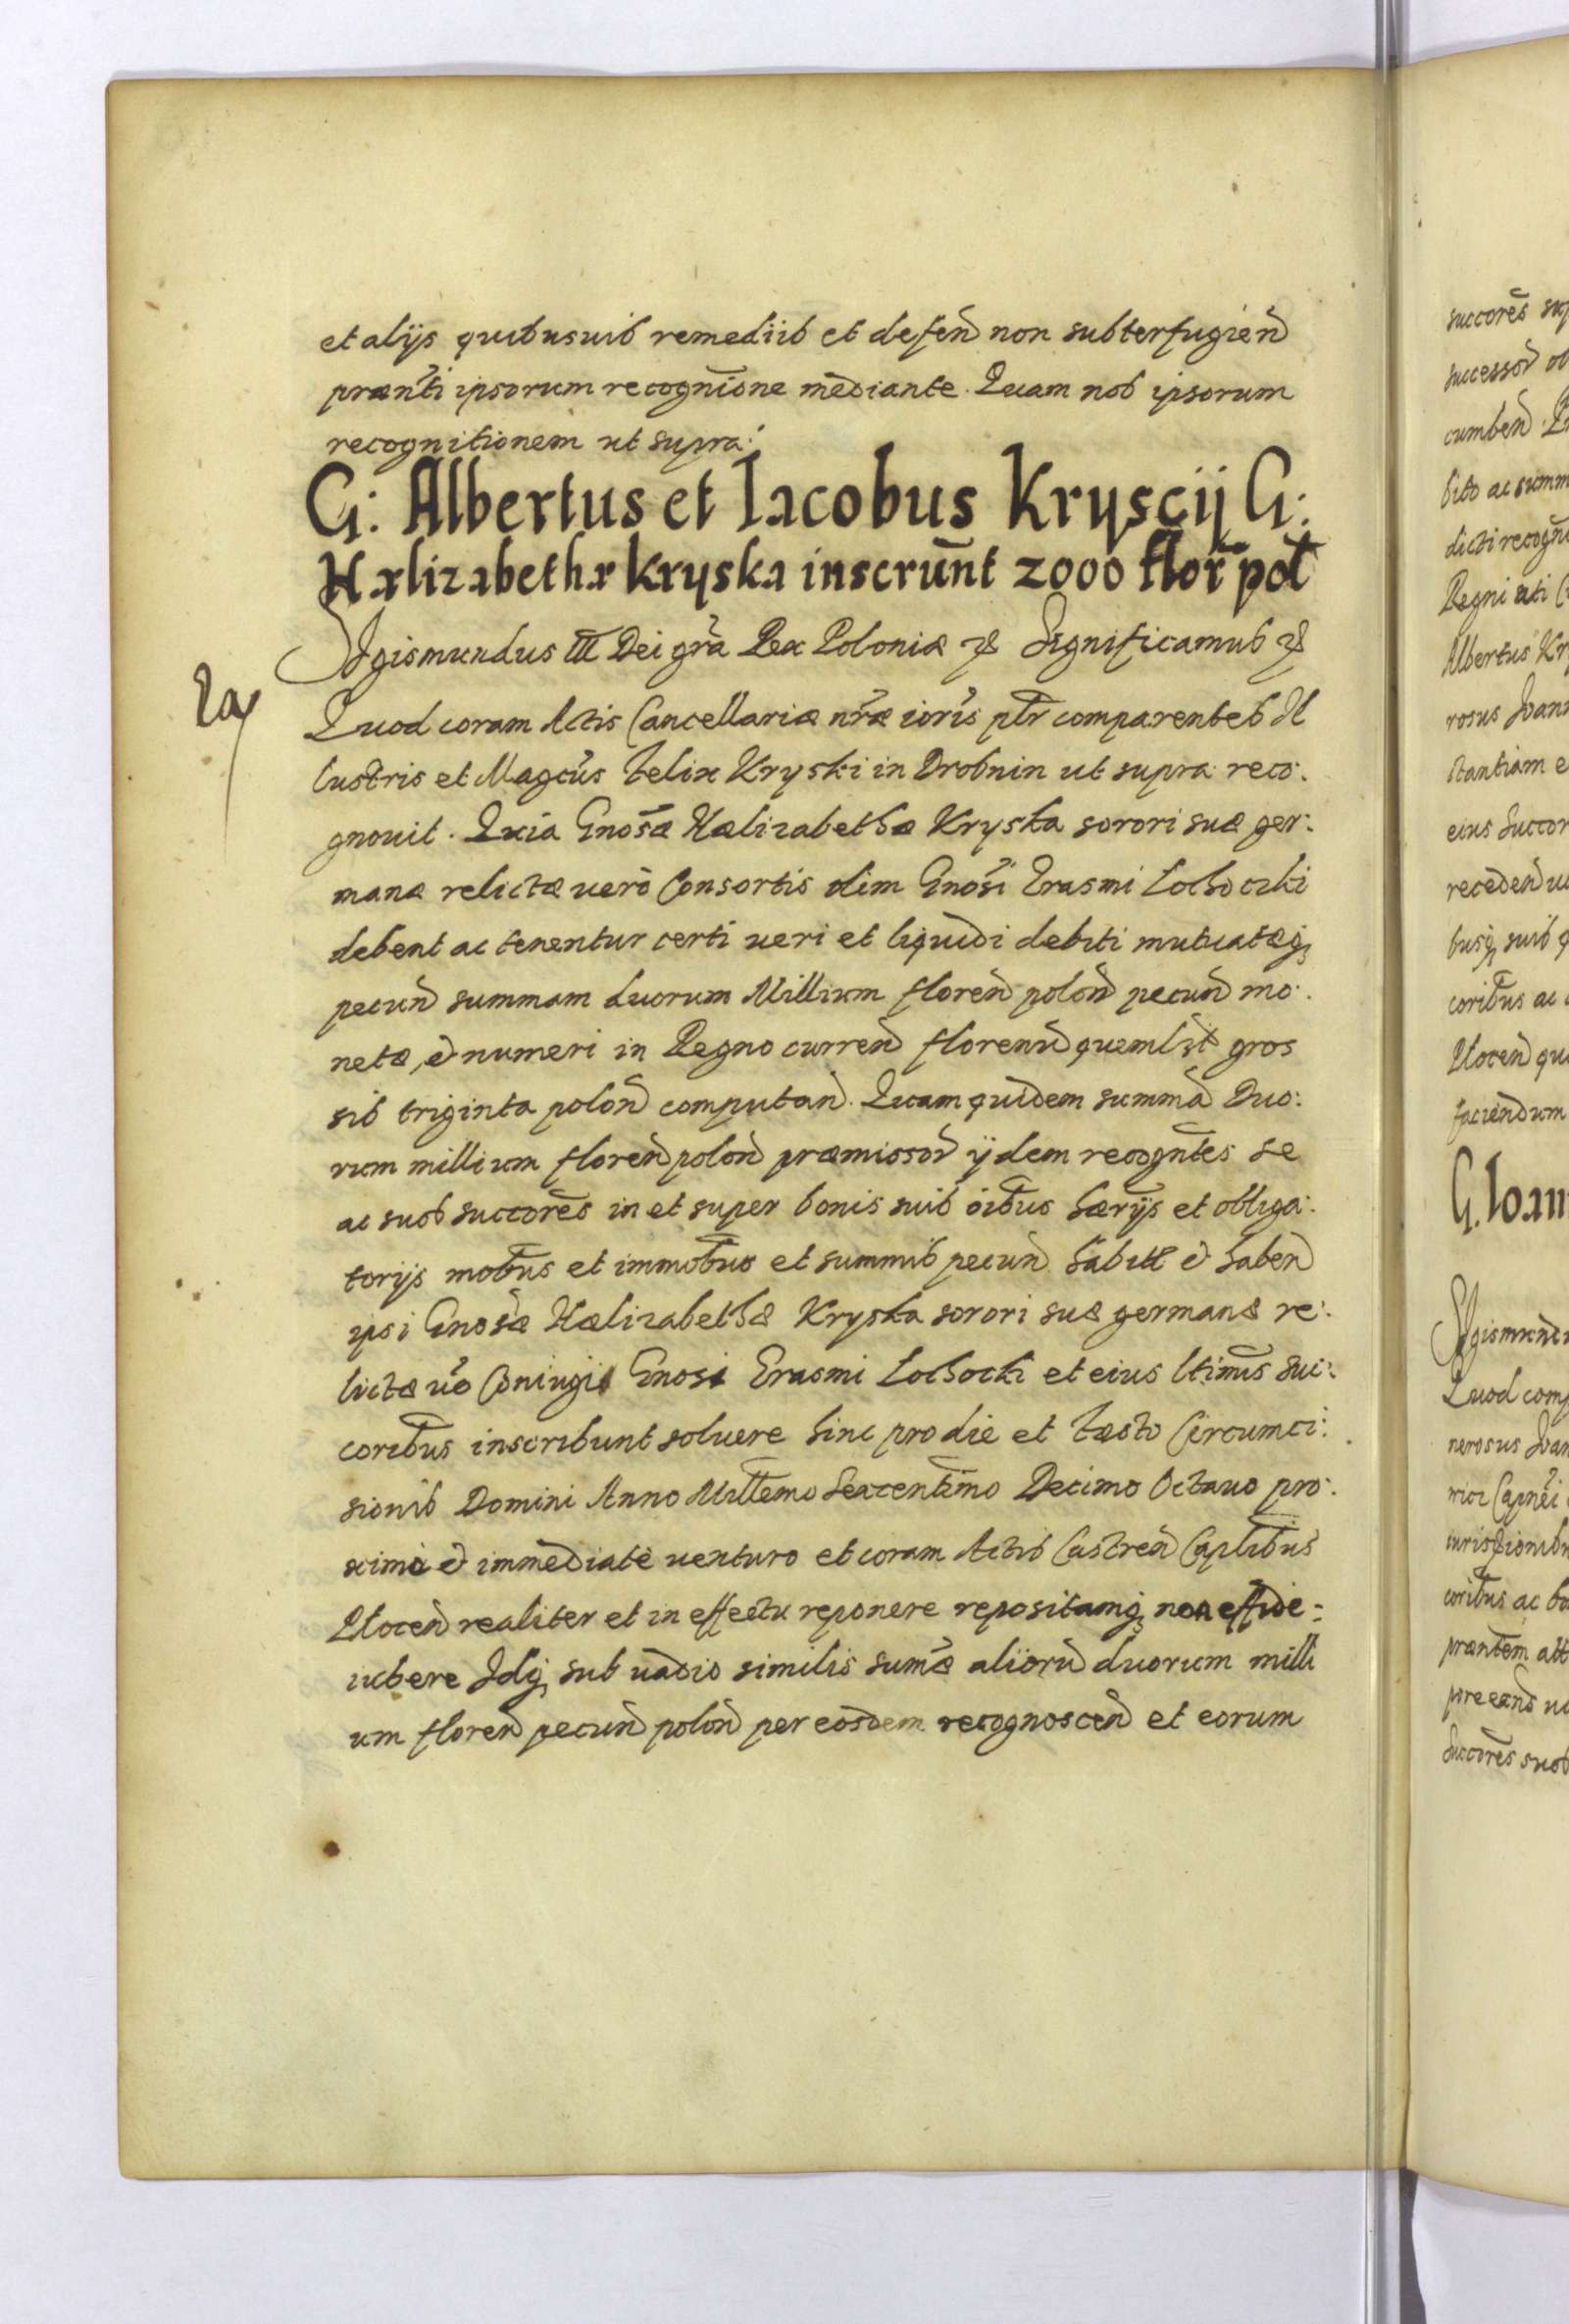 et alijs quibusuis remediis et defen̄ non subterfugien̄
præn̄ti ipsorum recogn̄ione mediante. Quam nos ipsorum
recognitionem ut supra.
G: Albertus et Iacobus Kryscij G:
Hælizabethæ Kryska inscrūnt 2000 flor̄ pol
Sigismundus III Dei gr̄a Rex Poloniæ Significamus
Quod coram Actis Cancellariæ nr̄æ ior̄is pl̄r comparentes Il
lustris et Magcūs Felix Kryski in Drobnin ut supra reco:
gnouit. Quia Gnosæ Hælizabethæ Kryska sorori suæ ger:
manæ relictæ uero Consortis olim Gnosi Erasmi Lochoczki
debent ac tenentur certi ueri et liquidi debiti mutuatæq;
pecun̄ summam duorum Millium floren̄ polon̄ pecun̄ mo:
netæ, & numeri in Regno curren̄ florenū quemlt gros
sis triginta polon̄ computan̄. Quam quidem summā Duo:
rum millium floren̄ polon̄ præmissor̄ ijdem recogn̄tes se
ac suos succores in et super bonis suis oībus hærijs et obliga:
torijs mob̄us et immob̄us et summis pecun̄ habit & haben̄
ipsi Gnosæ Hælizabethæ Kryska sorori suæ germanæ re:
lictæ uō Coniugis Gnosi Erasmi Lochocki et eius ltimis suc:
coribus inscribunt soluere hinc pro die et Fæsto Circumci:
sionis Domini Anno Millemo Sexcentimo Decimo Octauo pro:
ximè & immediatè uenturo et coram Actis Castren̄ Caplibus
Plocen̄ realiter et in effectu reponere repositamq; non effide:
iubere Idq; sub uadio similis sum̄æ aliorū duorum milli
um floren̄ pecun̄ polon̄ per eosdem recognoscen̄ et eorum
succores
successor̄
cumben̄
bito ac summ
dicti recogn
Regni
Albertus Kr
rosus Ioann
stantiam e
eius Succor
receden̄
busq; suis q
coribus ac
Plocen̄ qu
faciendum
G. Ioan
Sigismund
Quod comp
nerosus Ioan
coribus ac bo
præntem
Succores suos